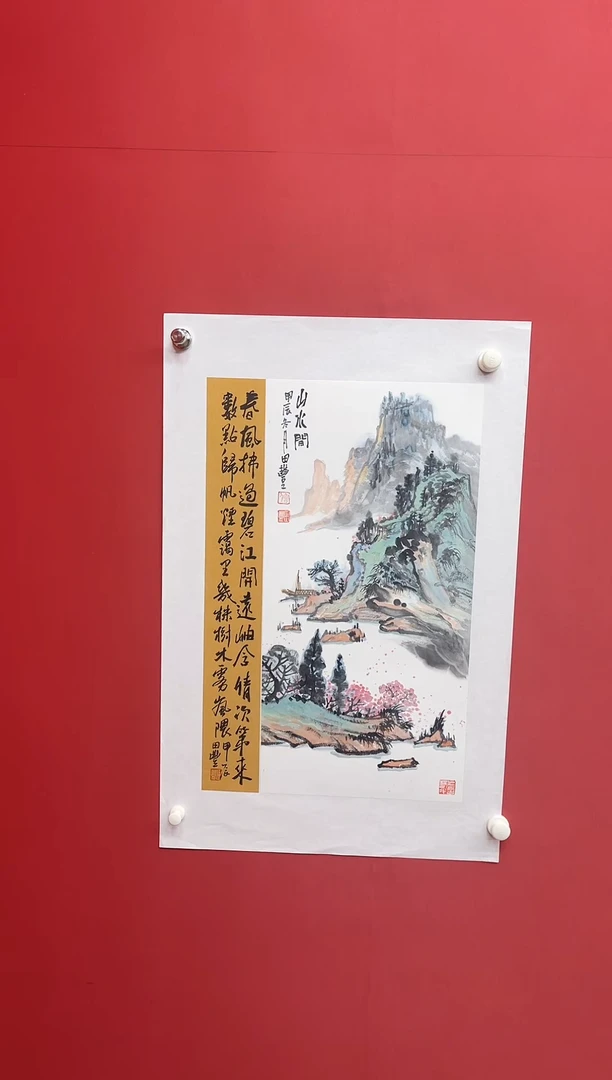 山水間
甲辰冬月田豐
春風拂過碧江開遠岫含情次第來
數點歸帆煙靄里幾株樹木霧嵐隈甲辰
田豐